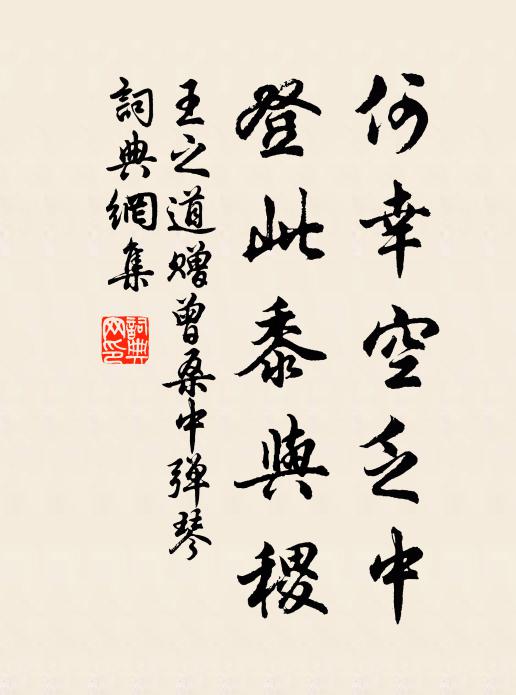 何幸空乏中
登此黍與稷
王之道赠曾桑中弹琴
詞典網集
詞典
网印